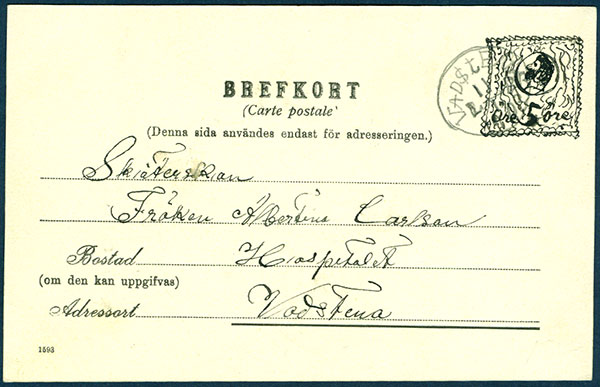 BREFKORT
(Carte postale)
(Denna sida användes endast för adresseringen.)
VADSTE
öre 5 öre
Sköterskan
Fröken Albertina Carlson
Bostad Hospitalet
(om den kan uppgifvas)
Adressort Vadstena
1593